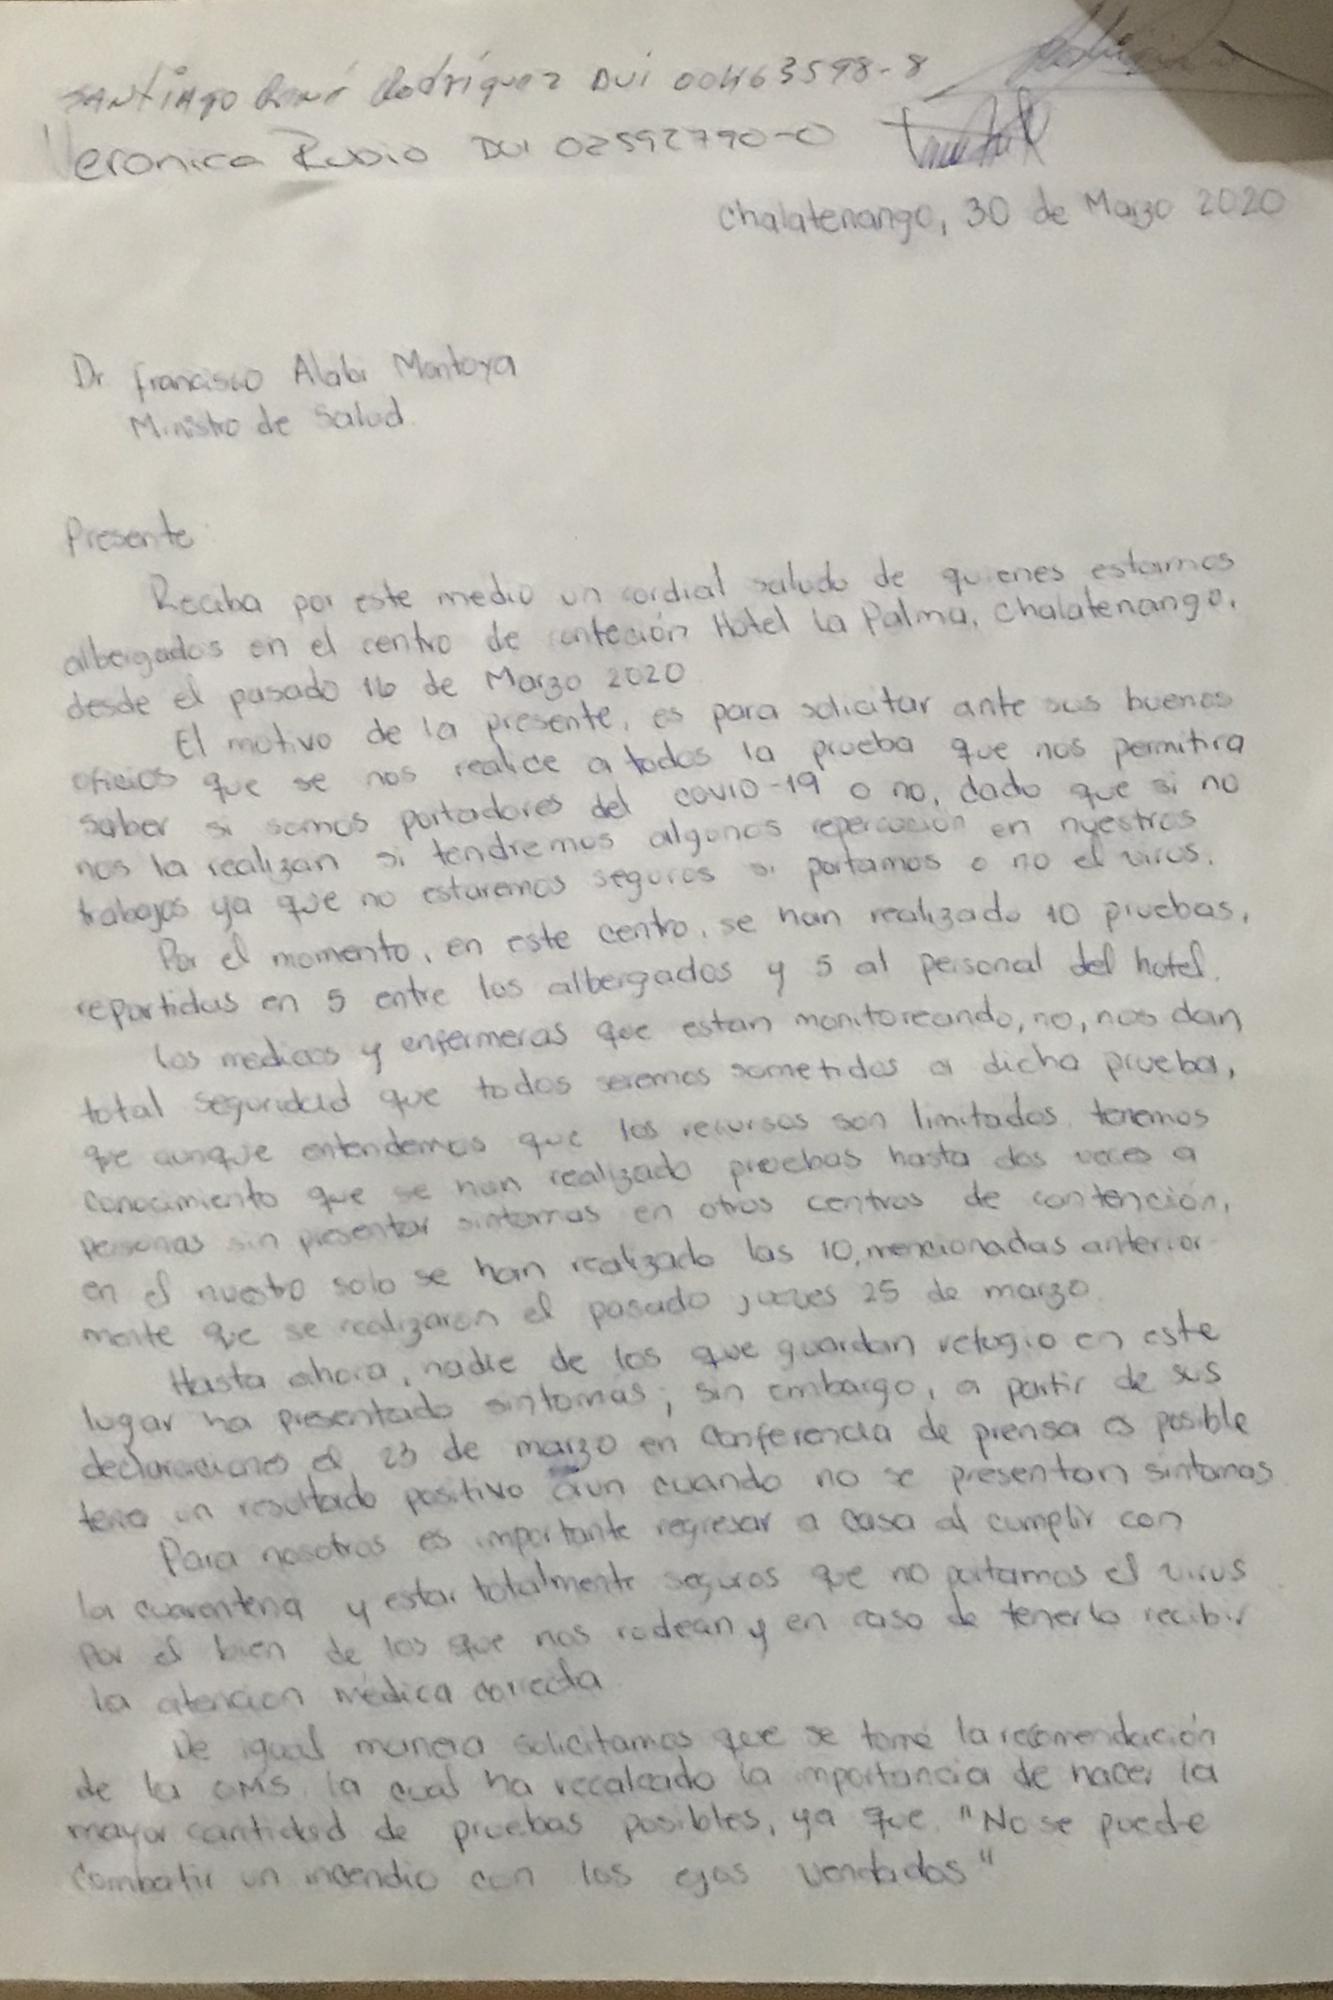 Santiago René Rodríguez DUI 00463598-8
Veronica Rubio DUI 02592790-0
Chalatenango, 30 de Marzo 2020
Dr Francisco Alabi Montoya
Ministro de Salud.
Presente
Reciba por este medio un cordial saludo de quienes estamos
albergados en el centro de conteción Hotel La Palma, Chalatenango,
desde el pasado 16 de Marzo 2020
El motivo de la presente, es para solicitar ante sus buenos
oficios que se nos realice a todos la prueba que nos permitira
saber si somos portadores del COVID-19 o no, dado que si no
nos la realizan si tendremos algunos repercusión en nuestros
trabajos ya que no estaremos seguros si portamos o no el virus.
Por el momento, en este centro, se han realizado 10 pruebas,
repartidas en 5 entre los albergados y 5 al personal del hotel.
Los medicos y enfermeras que estan monitoreando, no, nos dan
total seguridad que todos seremos sometidos a dicha prueba,
que aunque entendemos que los recursos son limitados, tenemos
conocimiento que se han realizado pruebas hasta dos veces a
personas sin presentar sintomas en otros centros de contención,
en el nuestro solo se han realizado las 10, mencionadas anterior
mente que se realizaron el pasado jueves 25 de marzo.
Hasta ahora, nadie de los que guardan refugio en este
lugar ha presentado sintomas; sin embargo, a partir de sus
declaraciones el 23 de marzo en conferencia de prensa es posible
tener un resultado positivo aun cuando no se presentan sintomas
Para nosotros es importante regresar a casa al cumplir con
la cuarentena y estar totalmente seguros que no portamos el virus
por el bien de los que nos rodean y en caso de tenerlo recibir
la atencion médica correcta.
De igual manera solicitamos que se tome la recomendación
de la OMS, la cual ha recalcado la importancia de hacer la
mayor cantidad de pruebas posibles, ya que "No se puede
combatir un incendio con los ojos vendados"